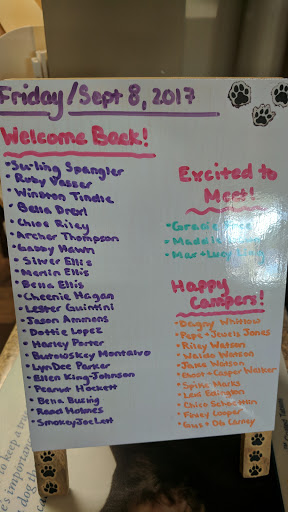 Friday/Sept 8, 2017
Welcome Back!
• Sterling Spangler
• Ruby Vasser
• Winston Tindle
• Bella Drexl
• Chloe Riley
• Archer Thompson
• Gabby Hawn
• Silver Ellis
• Merlin Ellis
• Bella Ellis
• Cheenie Hagan
• Lester Guintini
• Jason Ammons
• Dottie Lopez
• Harley Porter
• Butowskey Montalvo
• LynDee Parker
• Ellen King-Johnson
• Peanut Hockett
• Bella Busing
• Reba Holmes
• Smokey Joe Lent
Excited to
Meet!
• Gracie
• Maddie
• Max + Lucy
Happy
Campers!
• Dagny Whitlow
• Pepe + Jewels Jones
• Riley Watson
• Waldo Watson
• Jake Watson
• Ghost + Casper Walker
• Spike Marks
• Levi Edington
• Chico Schachtan
• Foxey Cooper
• Gus + Ole Carney
to keep a
it's important
dog th